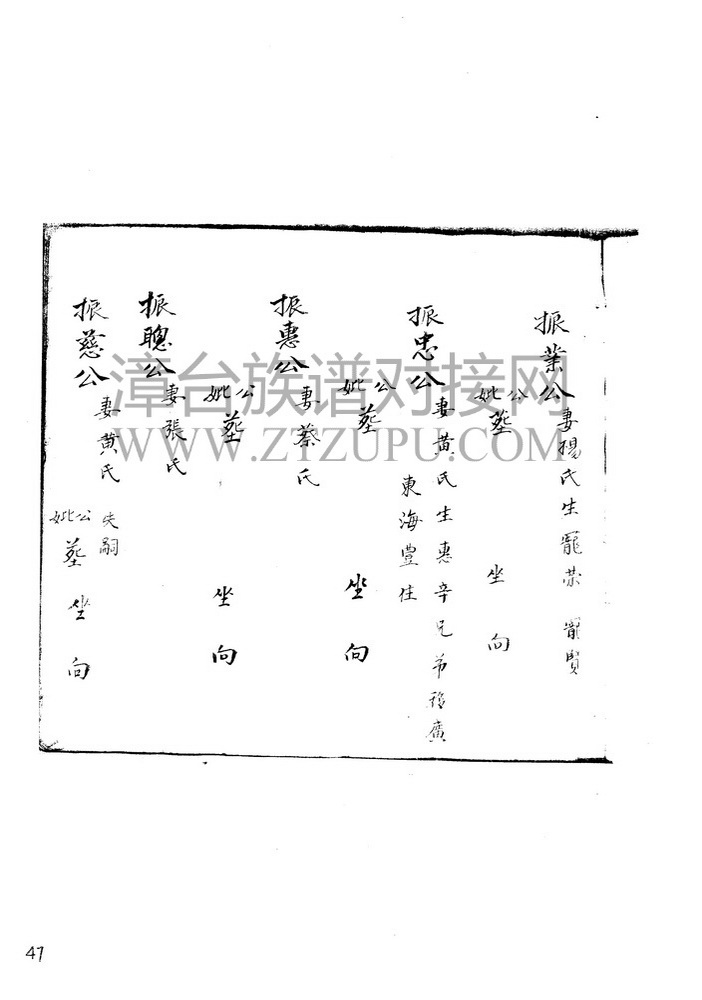 振業公妻楊氏生寵荣 寵賢
公妣塟 坐 向
振忠公妻黄氏生惠辛兄弟移廣
東海豐住
公妣塟 坐 向
振惠公妻蔡氏
公妣塟 坐 向
振聰公妻張氏
振慈公妻黄氏 失嗣
公妣塟 坐 向
漳台族谱对接网
WWW.ZTZUPU.COM
47